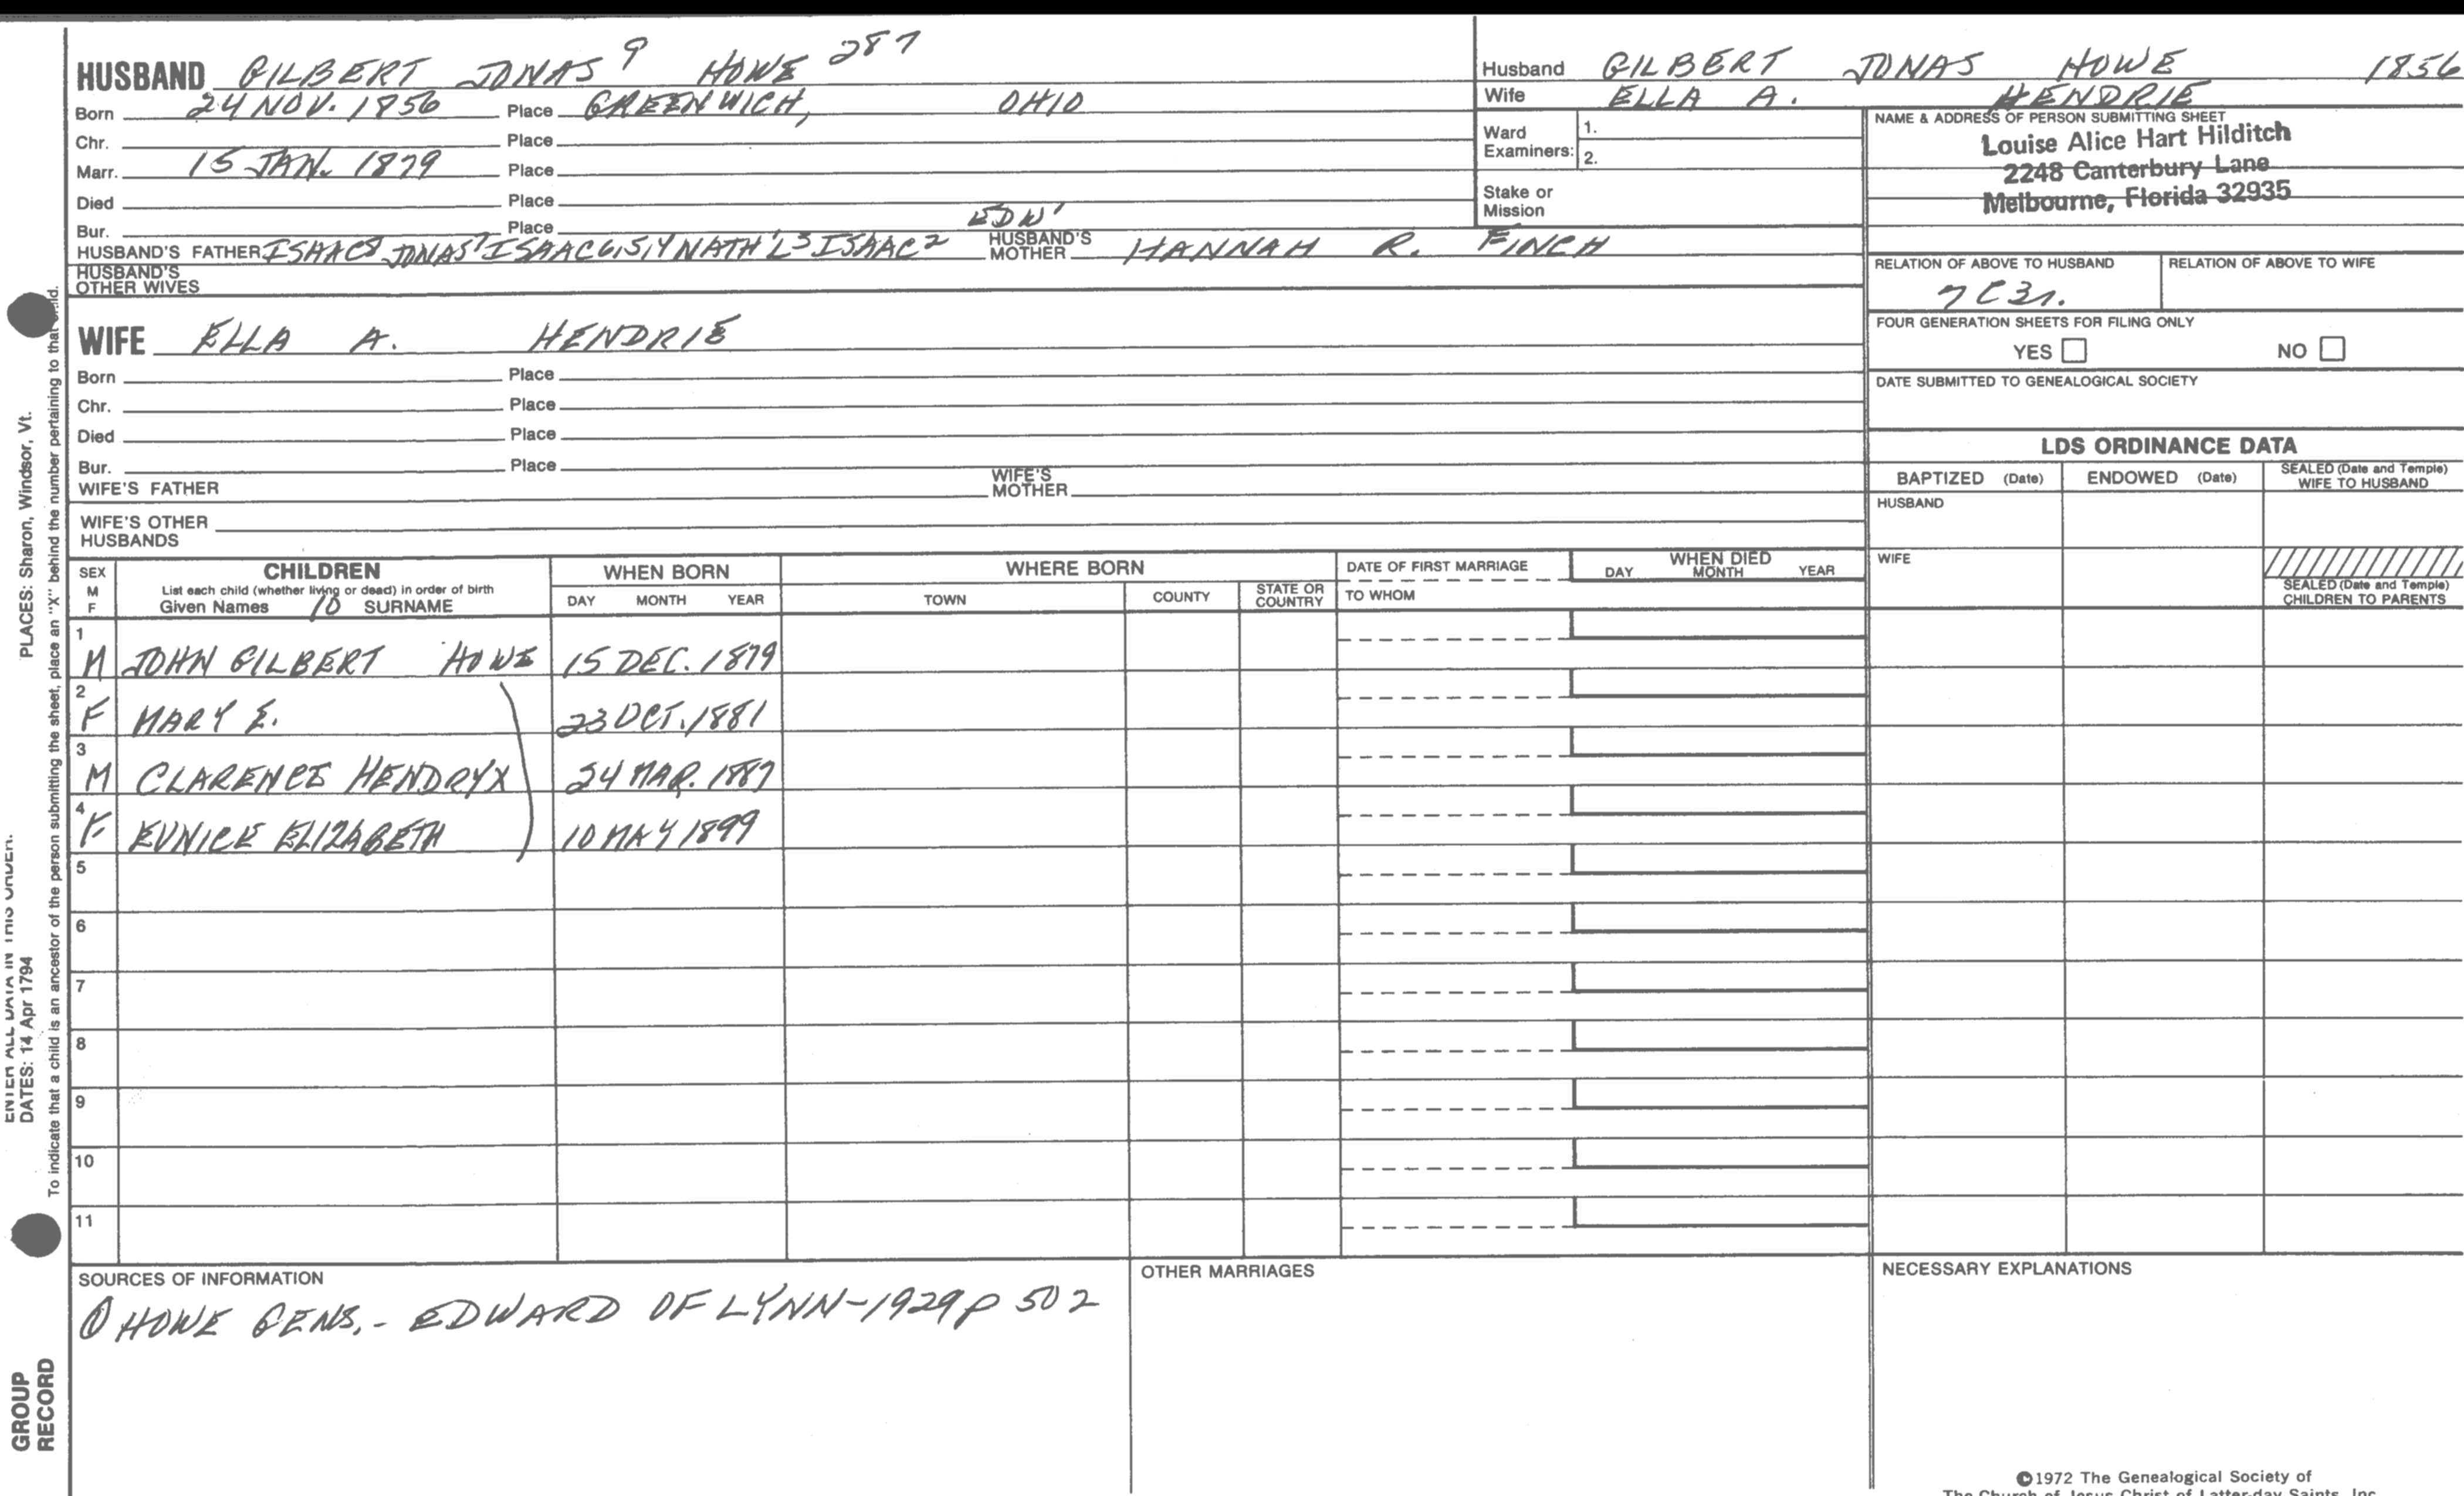 HUSBAND GILBERT JONAS 9 HOWE 287
Born 24 NOV. 1856 Place GREENWICH, OHIO
Chr. Place
Marr. 15 JAN. 1879 Place
Died Place
Bur. Place EDW'
HUSBAND'S FATHER ISAAC8 JONAS7 ISAAC6,5,4 NATH'L3 ISAAC2 HUSBAND'S MOTHER HANNAH R. FINCH
HUSBAND'S OTHER WIVES
WIFE ELLA A. HENDRIE
Born Place
Chr. Place
Died Place
Bur. Place
WIFE'S FATHER WIFE'S MOTHER
WIFE'S OTHER HUSBANDS
Husband GILBERT JONAS HOWE 1856
Wife ELLA A. HENDRIE
Ward Examiners: 1.
2.
Stake or Mission
NAME & ADDRESS OF PERSON SUBMITTING SHEET
Louise Alice Hart Hilditch
2248 Canterbury Lane
Melbourne, Florida 32935
RELATION OF ABOVE TO HUSBAND RELATION OF ABOVE TO WIFE
7C3r.
FOUR GENERATION SHEETS FOR FILING ONLY
YES NO
DATE SUBMITTED TO GENEALOGICAL SOCIETY
LDS ORDINANCE DATA
BAPTIZED (Date) ENDOWED (Date) SEALED (Date and Temple) WIFE TO HUSBAND
HUSBAND
WIFE
SEALED (Date and Temple) CHILDREN TO PARENTS
SEX M F
CHILDREN
List each child (whether living or dead) in order of birth
Given Names 10 SURNAME
WHEN BORN
DAY MONTH YEAR
WHERE BORN
TOWN COUNTY STATE OR COUNTRY
DATE OF FIRST MARRIAGE
TO WHOM
WHEN DIED
DAY MONTH YEAR
1
M JOHN GILBERT HOWE 15 DEC. 1879
2
F MARY E. 23 OCT. 1881
3
M CLARENCE HENDRYX 24 MAR. 1887
4
F EUNICE ELIZABETH 10 MAY 1899
5
6
7
8
9
10
11
SOURCES OF INFORMATION
① HOWE GENS. - EDWARD OF LYNN - 1929 p 502
OTHER MARRIAGES
NECESSARY EXPLANATIONS
©1972 The Genealogical Society of
The Church of Jesus Christ of Latter-day Saints, Inc.
PLACES: Sharon, Windsor, Vt.
ENTER ALL DATA IN THIS ORDER:
DATES: 14 Apr 1794
To indicate that a child is an ancestor of the person submitting the sheet, place an "X" behind the number pertaining to that child.
GROUP
RECORD